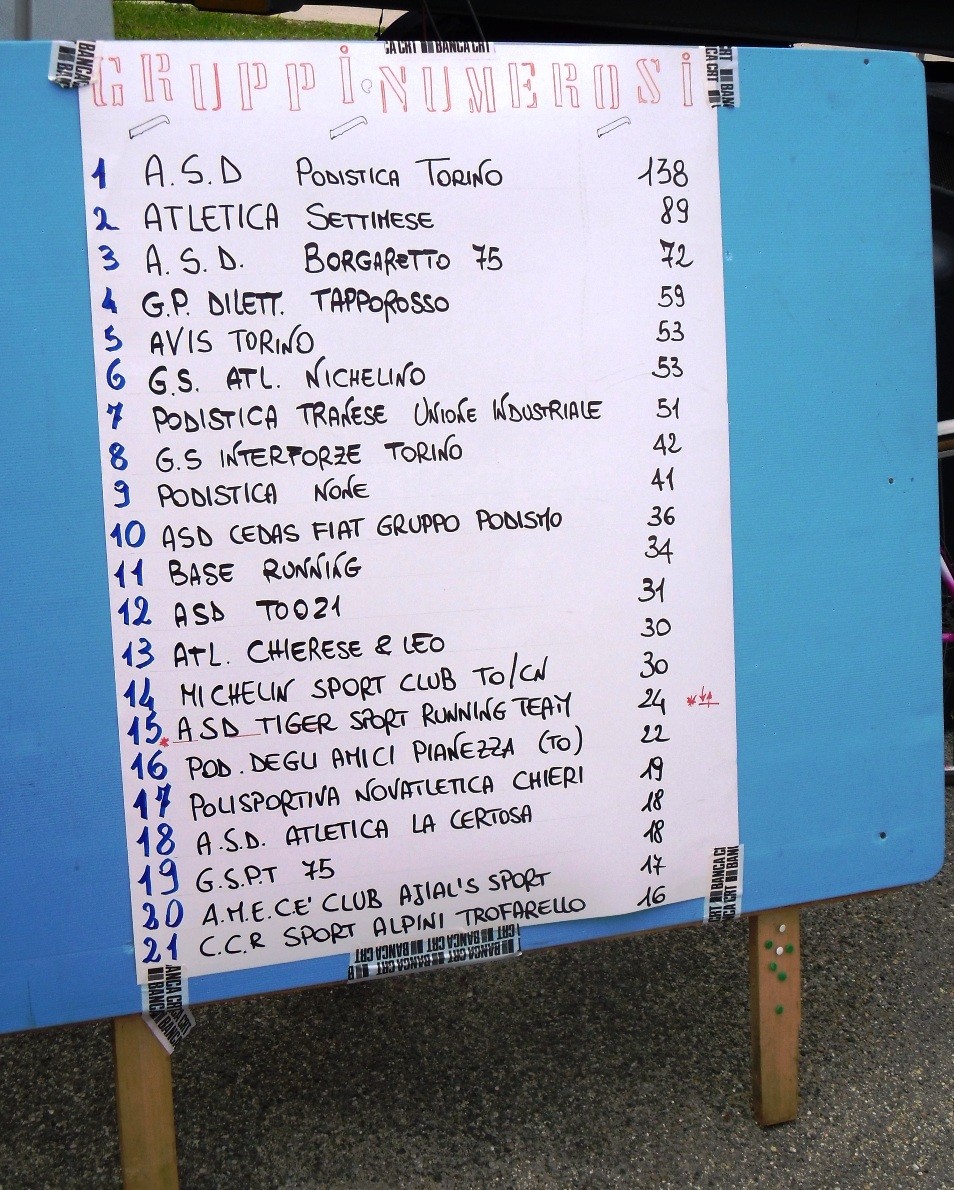 CA CRT BANCA CRT
GRUPPi·NUMEROSi
1 A.S.D PODISTICA TORINO 138
2 ATLETICA SETTIMESE 89
3 A.S.D. BORGAReTTO 75 72
4 G.P. DILETT. TAPPOROSSO 59
5 AVIS TORINO 53
6 G.S. ATL. NICHELINO 53
7 PODISTICA TRANESE UNIONE INDUSTRIALE 51
8 G.S INTERFORZE TORINO 42
9 PODISTICA NONE 41
10 ASD CEDAS FIAT GRUPPO PODISMO 36
11 BASE RUNNING 34
12 ASD TOO21 31
13 ATL. CHIERESE & LEO 30
14 MICHELIN SPORT CLUB TO/CN 30
15 * ASD TIGER SPORT RUNNING TEAM 24 *
16 POD. DEGLI AMICI PIANEZZA (TO) 22
17 POLISPORTIVA NOVATLETICA CHIERI 19
18 A.S.D. ATLETICA LA CERTOSA 18
19 G.S.P.T 75 18
20 A.M.E.CE' CLUB AJIAL'S SPORT 17
21 C.C.R SPORT ALPINI TROFARELLO 16
BANCA CRT BANCA CRT